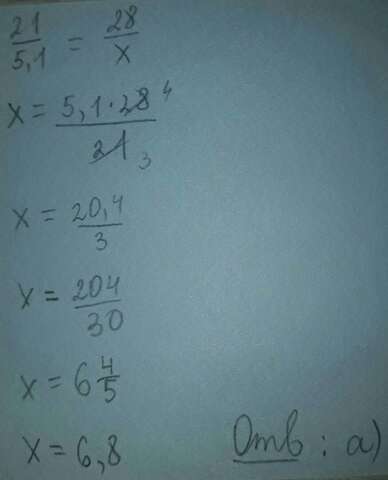 21/5,1 = 28/x
x = 5,1·28 4/21 3
x = 20,4/3
x = 204/30
x = 6 4/5
x = 6,8
Отв : а)